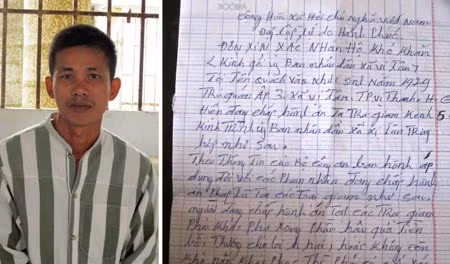 Cộng Hòa Xã Hội Chủ Nghĩa Việt Nam
Độc Lập Tự do Hạnh Phúc
ĐƠN XIN XÁC NHẬN HỘ KHÓ KHĂN
Kính gửi Ban nhân dân xã vị Tân
Tôi Tên Quách Văn Nhứt sinh Năm 1979
Trú quán ấp 3. xã vị Tân. TP vị Thanh. H G
Hiện đang chấp hành án Tại Trại giam Kênh 5
Kính Trình ủy Ban nhân dân xã vị Tân
hợp như sau.
Theo Thông Tin của Bộ công an ban hành áp
dụng đối với các Phạm nhân đang chấp hành
án Phạt Tù Tại các Trại giam như sau.
người đang chấp hành án Tại các Trại giam
Phải Khắc Phục xong Phần hậu quả Tiền
bồi Thường cho bị hại, hoặc không còn